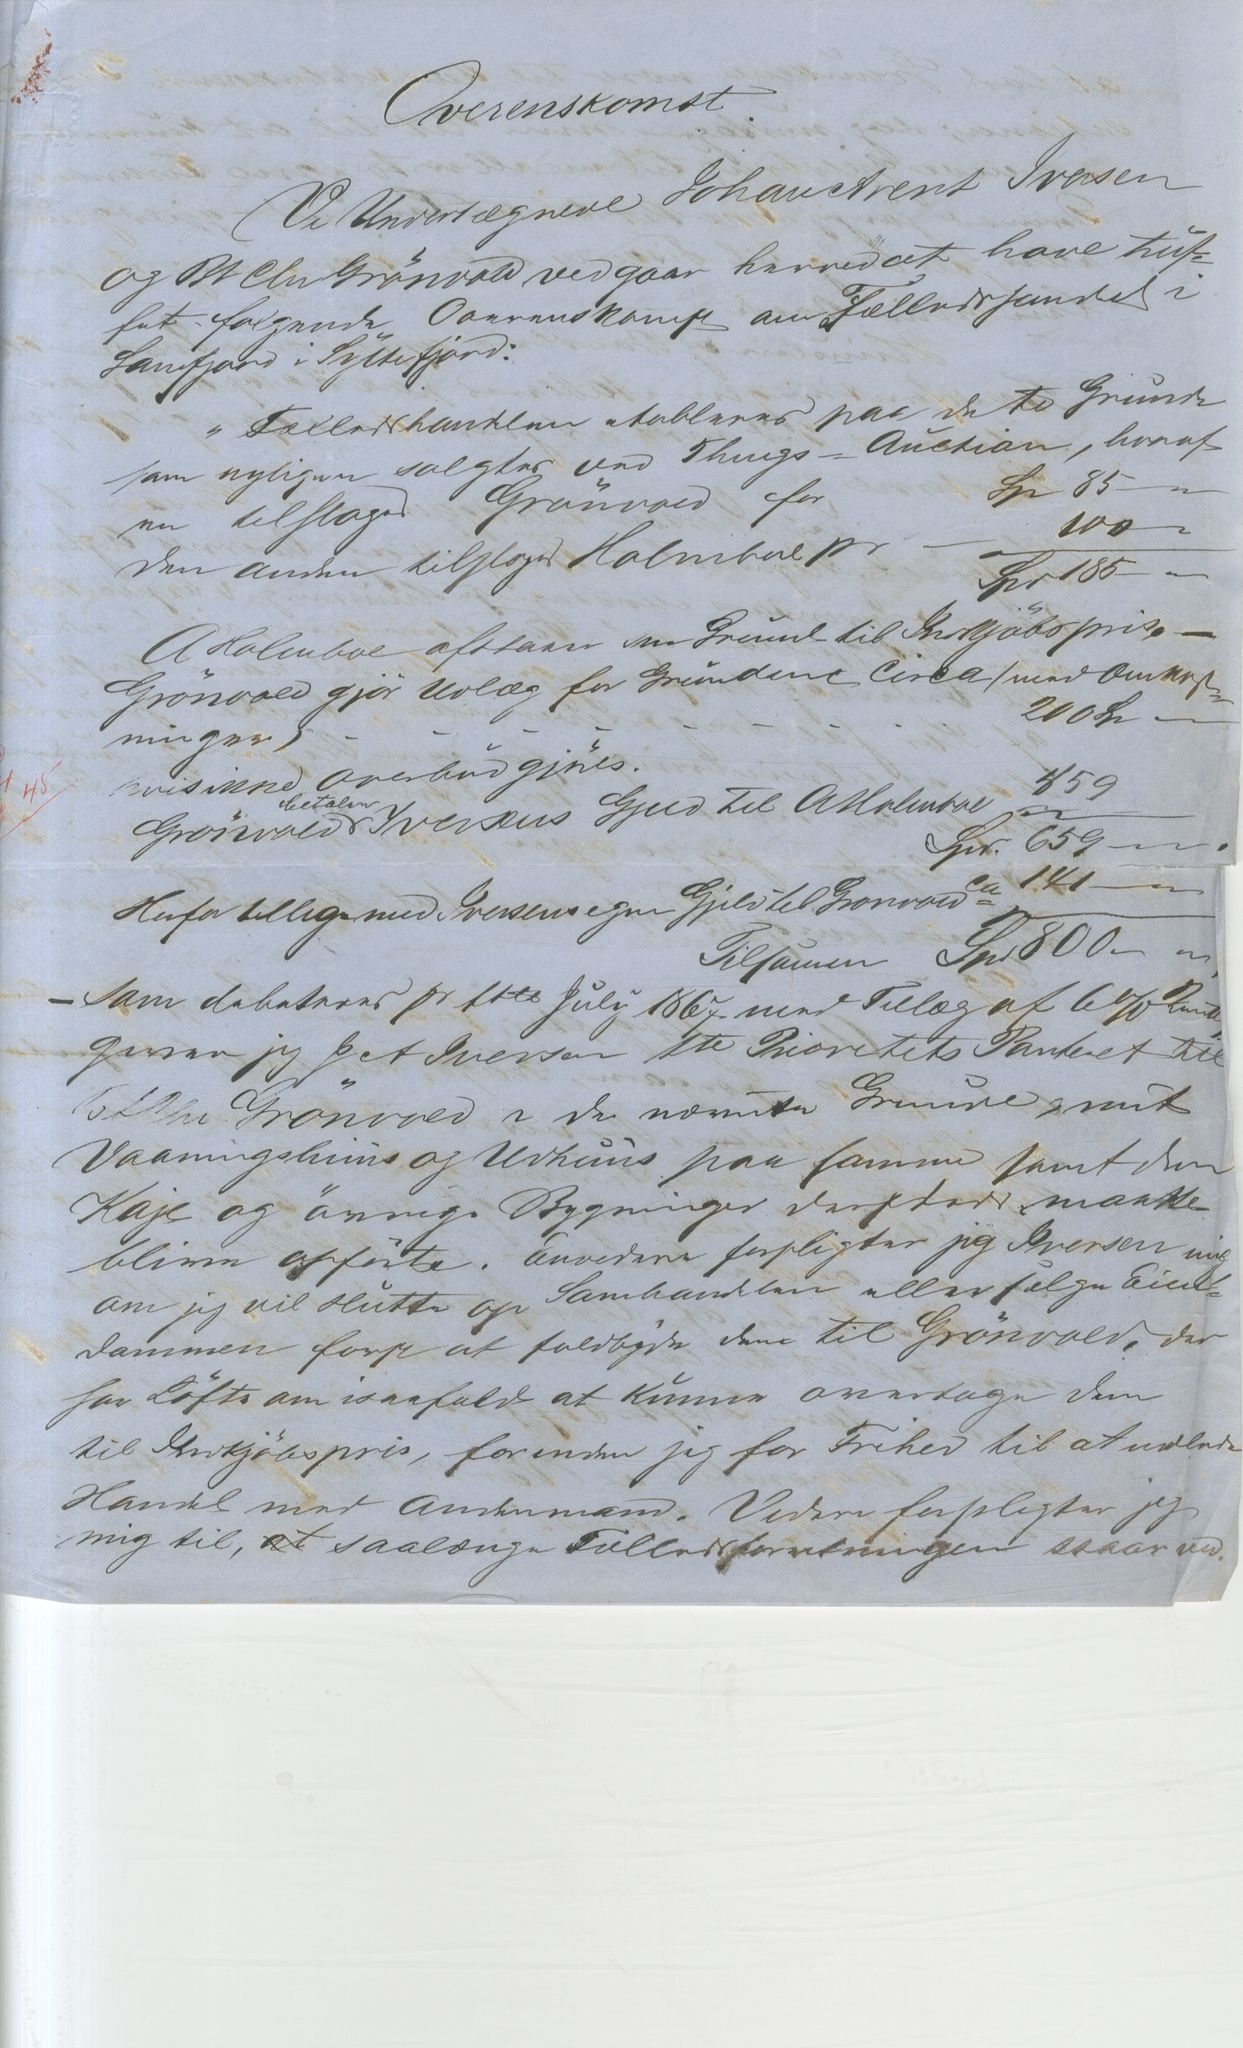 Overenskomst.
Vi Undertægnede Johan Arent Iversen
og Bt Chr Grönvold vedgaar herved at have truf-
fet følgende Overenskomst om Fælledshandel i
Sandfjord i Syltefjord:
" Fælledshandelen etableres paa de to Grunde
som nyligen solgtes ved Things-Auction, hvoraf
en tilsloges Grönvold for Sp 85 – "
den anden tilsloges Holmboe pr — 100 "
Spd 185 – "
A Holmboe afstaar sin Grund til Indkjöbspris. –
Grönvold gjör Udlæg for Grundene Circa (med Omkost-
ninger) - - - - - - - 200 Sp —
hvis ikke Overbud gjöres.
betaler
Grönvold Iversens Gjeld til A Holmboe 459
Spd. 659 – ".
Herfor tilligemed Iversens egen Gjeld til Grönvold ca 141 – "
Tilsamen Spd 800 – "
– som debiteres pr 1ste July 1867 med Tillæg af 6 % Rente,
giver jeg J A Iversen 1te Prioritets Panteret til
Bt Chr Grönvold i de nævnte Grunde, mit
Vaaningshuus og Udhuus paa samme samt den
Kaje og övrige Bygninger dersteds maatte
blive opförte. Envidere forpligter jeg Iversen mig
om jeg vil slutte op Samhandelen eller sælge Eien-
dommen först at falbyde den til Grönvold, der
har Löfte om isaafald at kunne overtage dem
til Indkjöbspris, forinden jeg har Frihed til at indlede
Handel med Andenmand. Videre forpligter jeg
mig til, at saalænge Fælledsforretningen staar ved